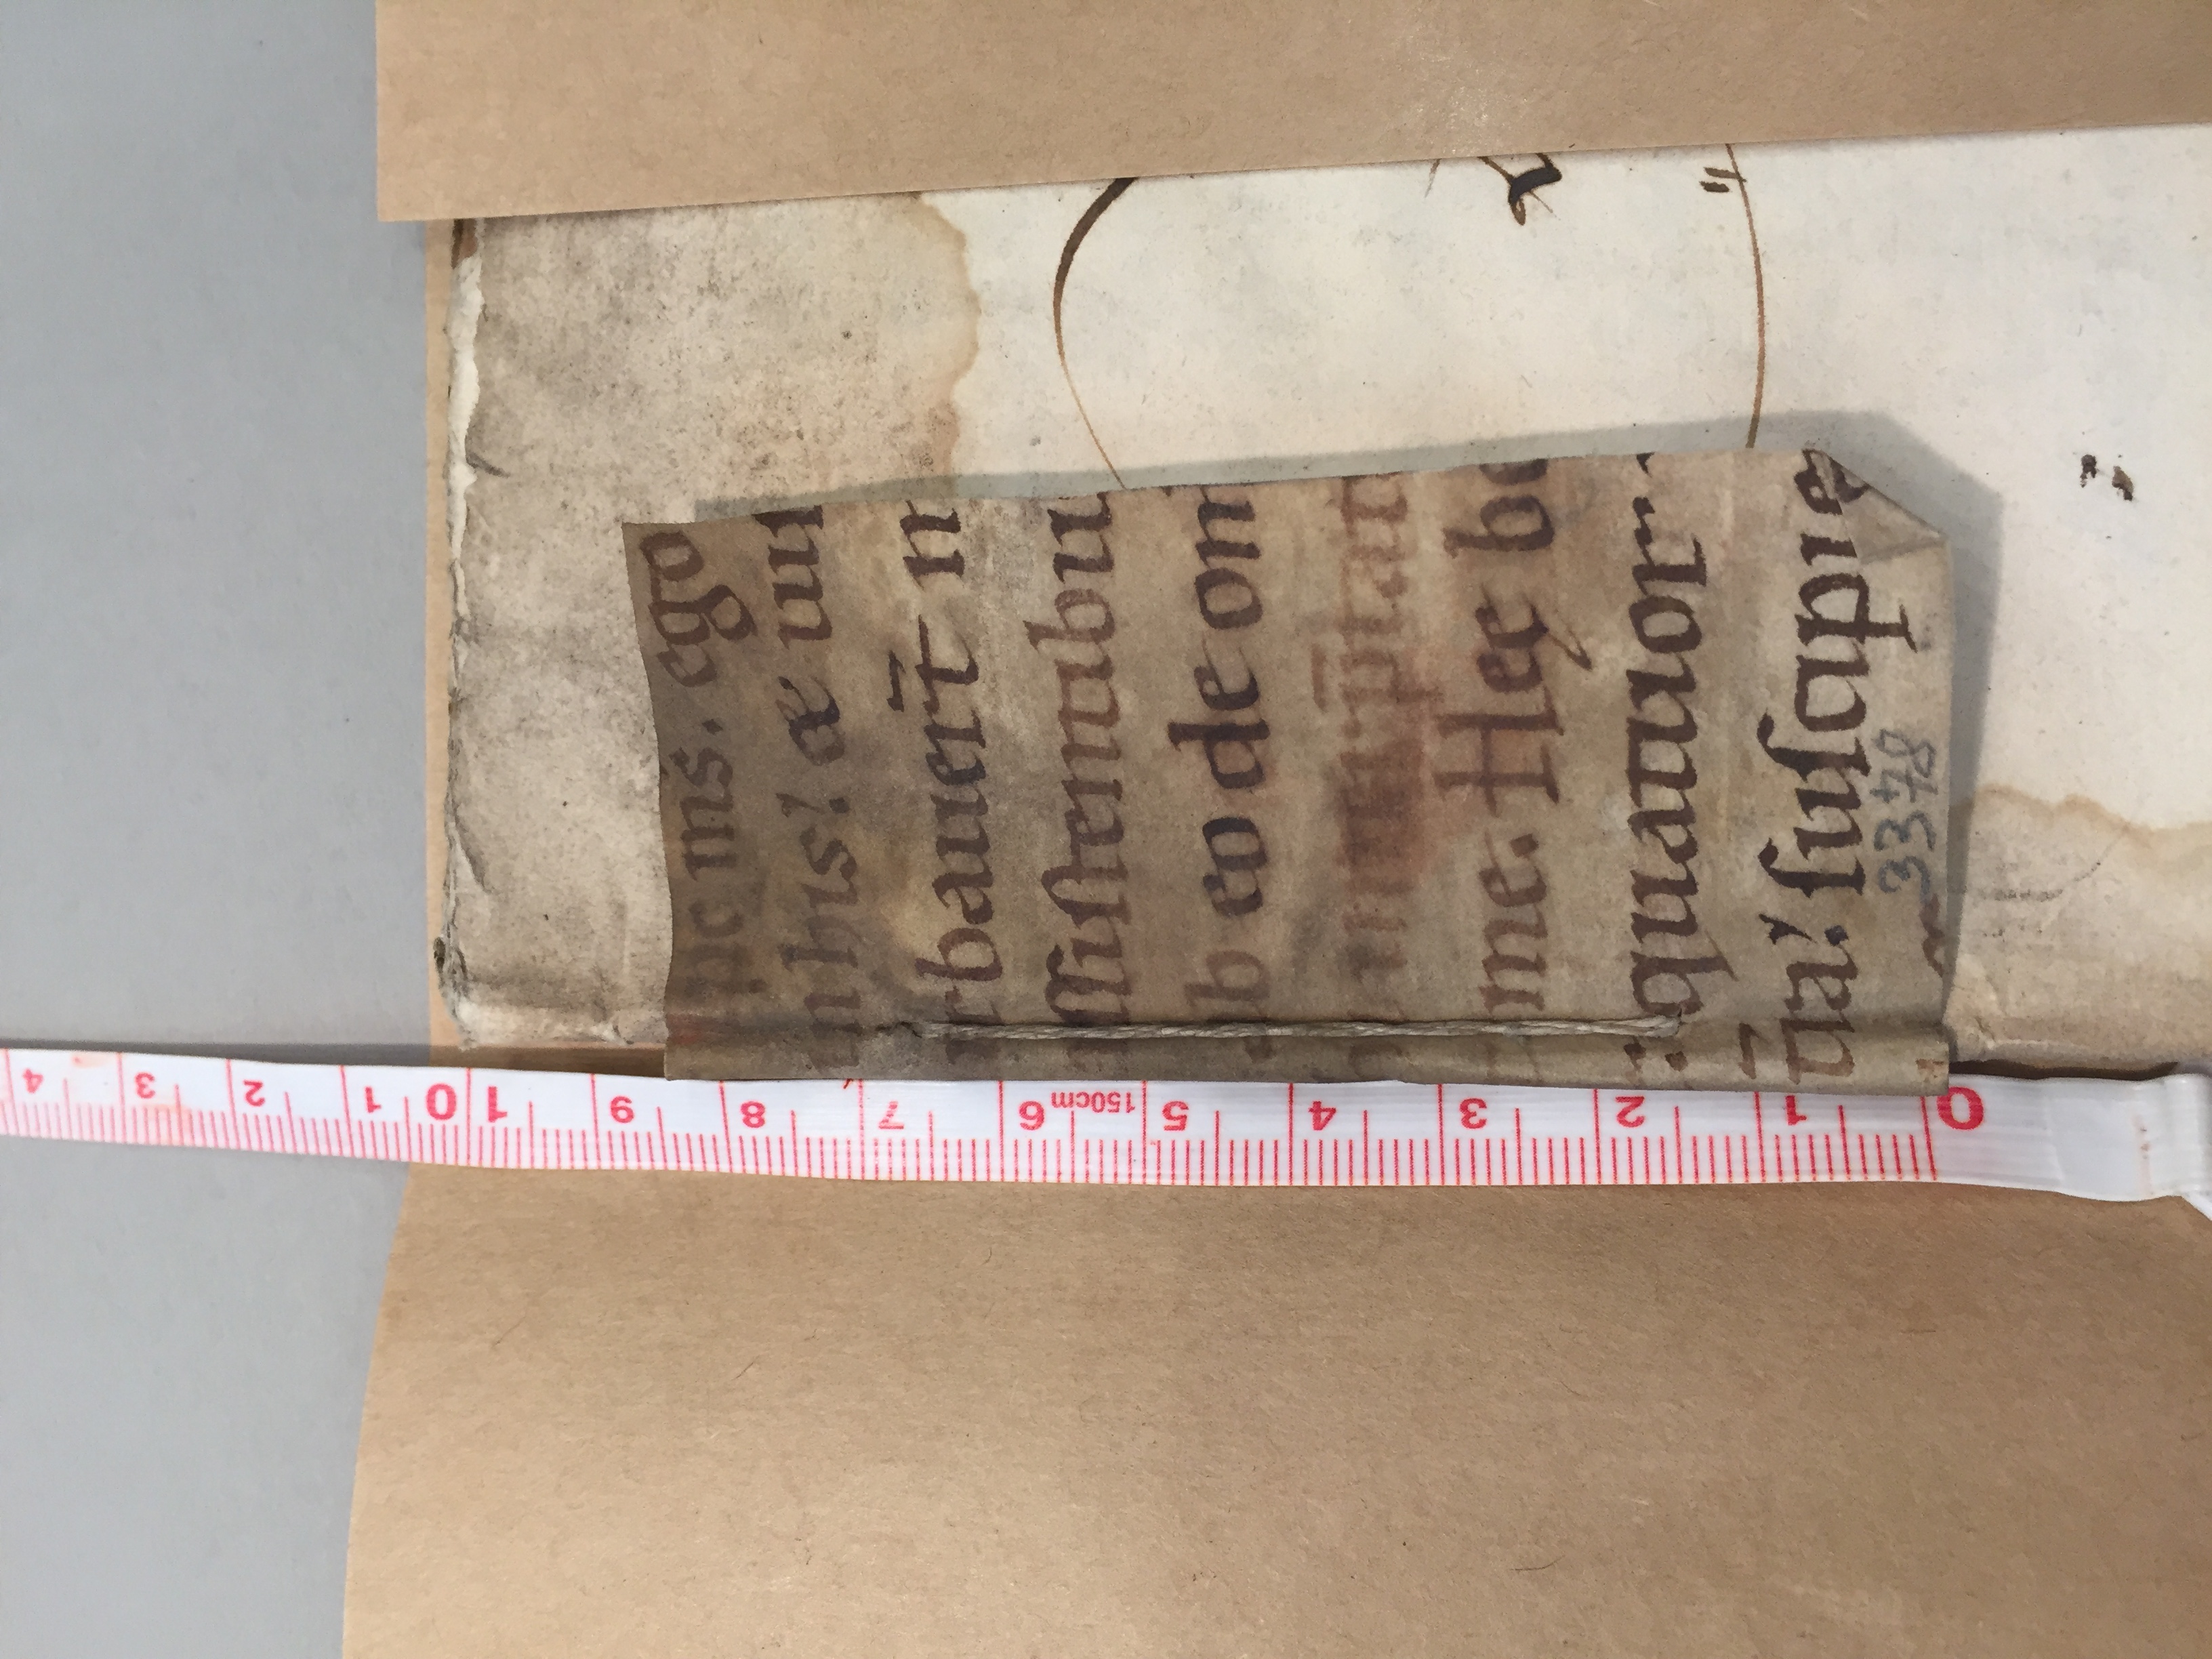 4
3
2
1
10
9
8
7
6
150cm
5
4
3
2
1
0
ſpc mſ. ego
in his! & uiſ
urbauer̄t m
ſſiſtentibu
ab eo de om
p̄tat
me. Hęę be
: quatuor
t̄ra! ſuſcipie
3378